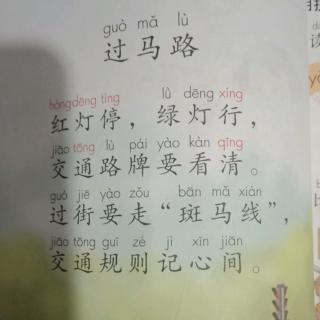 guò mǎ lù
过马路
hóng dēng tíng lǜ dēng xíng
红灯停，绿灯行，
jiāo tōng lù pái yào kàn qīng
交通路牌要看清。
guò jiē yào zǒu bān mǎ xiàn
过街要走“斑马线”，
jiāo tōng guī zé jì xīn jiān
交通规则记心间。
读